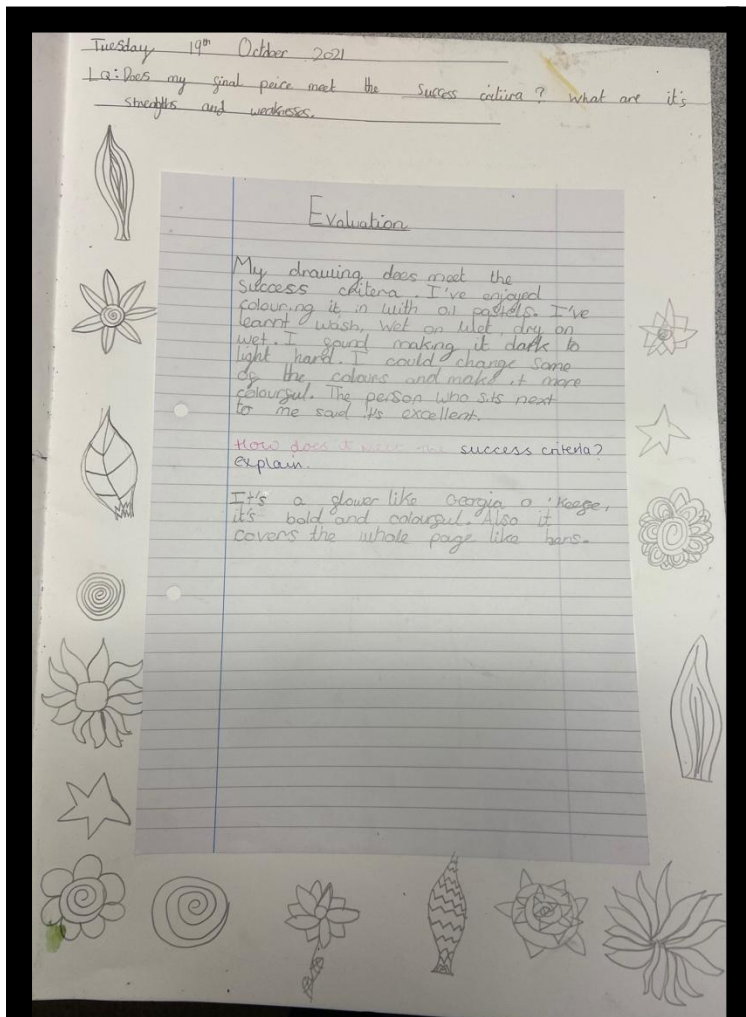 Tuesday 19th October 2021
LQ: Does my final peice meet the success critiria? What are it's
strengths and weaknesses.
Evaluation
My drawing does meet the
success critera. I've enjoyed
colouring it in with oil pastels. I've
learnt wash, wet on wet, dry on
wet. I found making it dark to
light hard. I could change some
of the colours and make it more
colourful. The person who sits next
to me said it's excellent.
How does it meet the success criteria?
explain.
It's a flower like Georgia o 'Keefe,
it's bold and colourful. Also it
covers the whole page like hers.